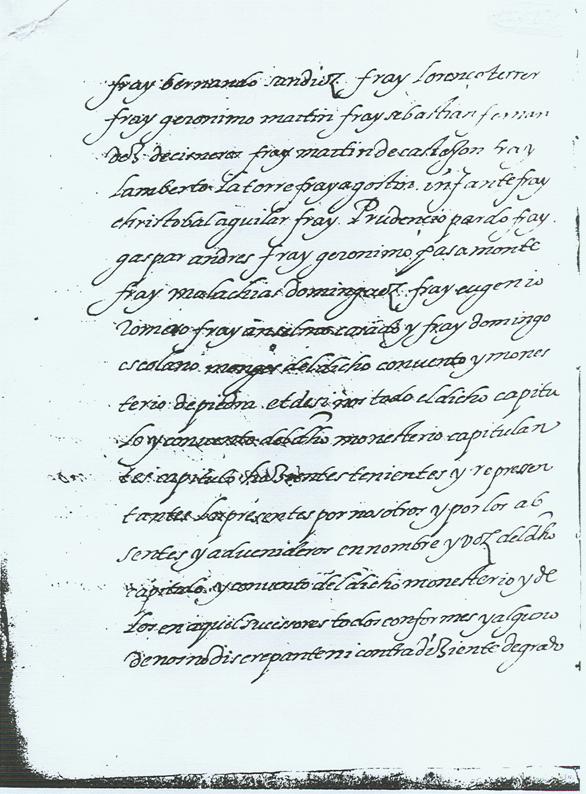 fray bernando sandiez fray lorenço terrer
fray geronimo martin fray sebastian fernan
dez decisneros fray martin decastejon fray
lamberto la torre fray agostin infante fray
christobal aguilar fray Prudencio pardo fray
gaspar andres fray geronimo pasamonte
fray malachias dominguez fray eugenio
Romero fray anselmo y fray domingo
escolano monges del dicho convento y mones
terio de piedra et desi nos todo el dicho capitu
lo y convento del dho monesterio capitulan
tes capitulo hazientes tenientes y represen
tantes los presentes por nosotros y por los ab
sentes y advenideros en nombre y voz del dho
capitulo y convento del dicho monesterio y de
los en aquel sucisores todos conformes y alguno
de nos no discrepante ni contradiziente de grado